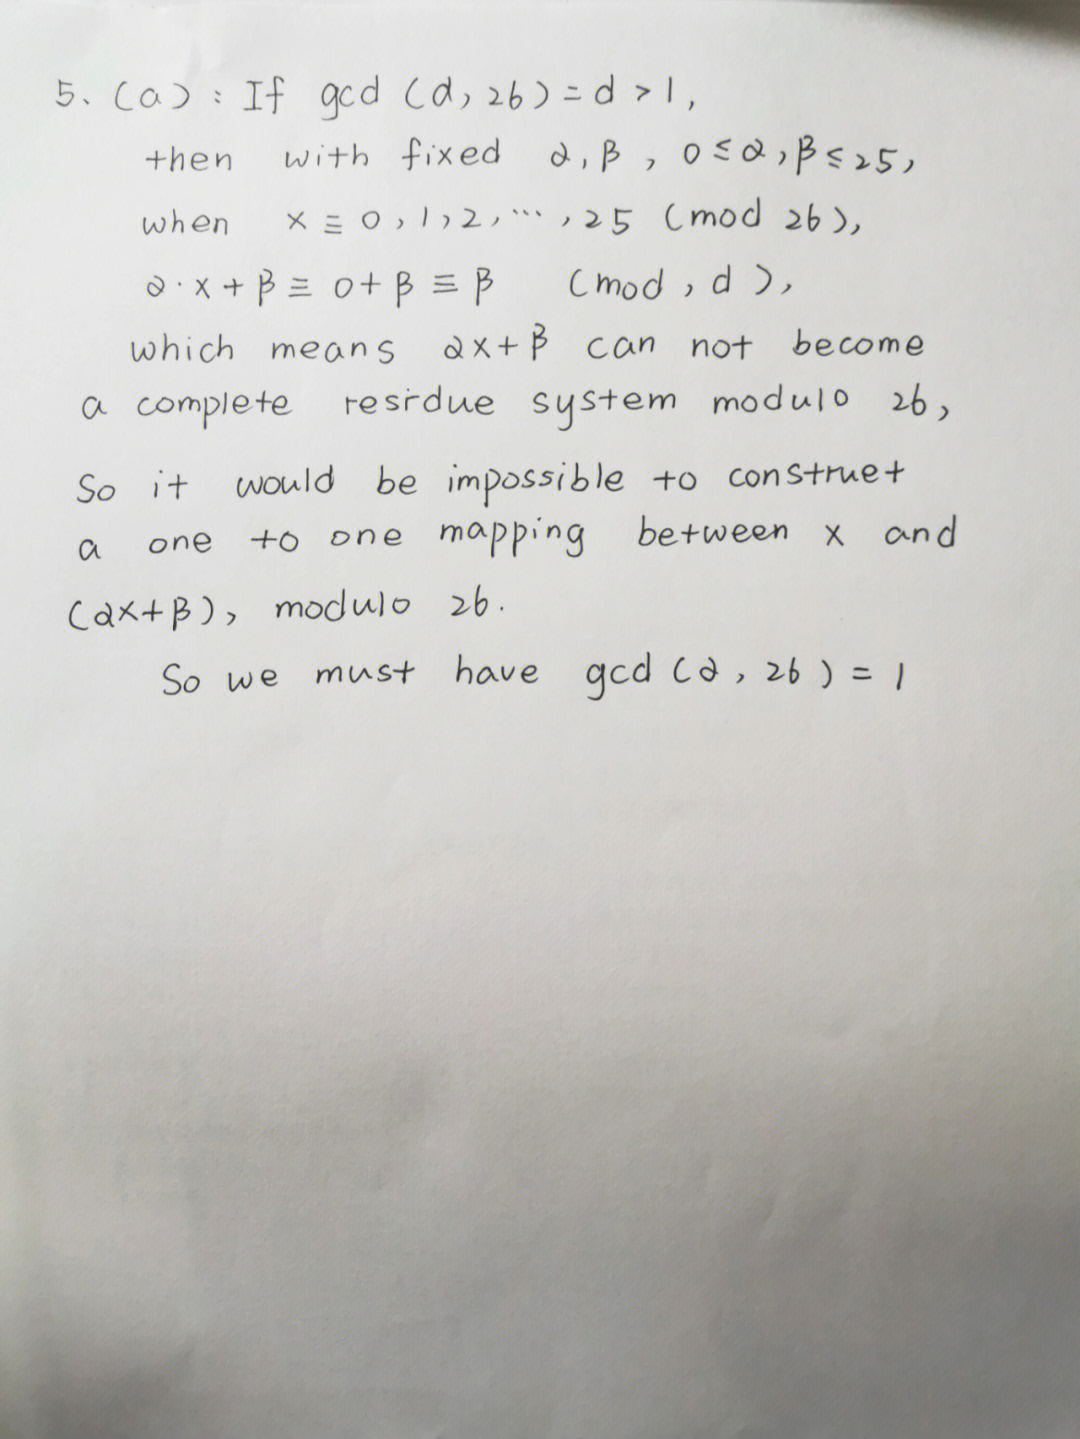 5、(a): If gcd (α, 26) = d > 1,
then with fixed α, β, 0 ≤ α, β ≤ 25,
when x ≡ 0, 1, 2, ···, 25 (mod 26),
α · x + β ≡ 0 + β ≡ β (mod, d),
which means αx + β can not become
a complete residue system modulo 26,
So it would be impossible to construct
a one to one mapping between x and
(αx+β), modulo 26.
So we must have gcd (α, 26) = 1